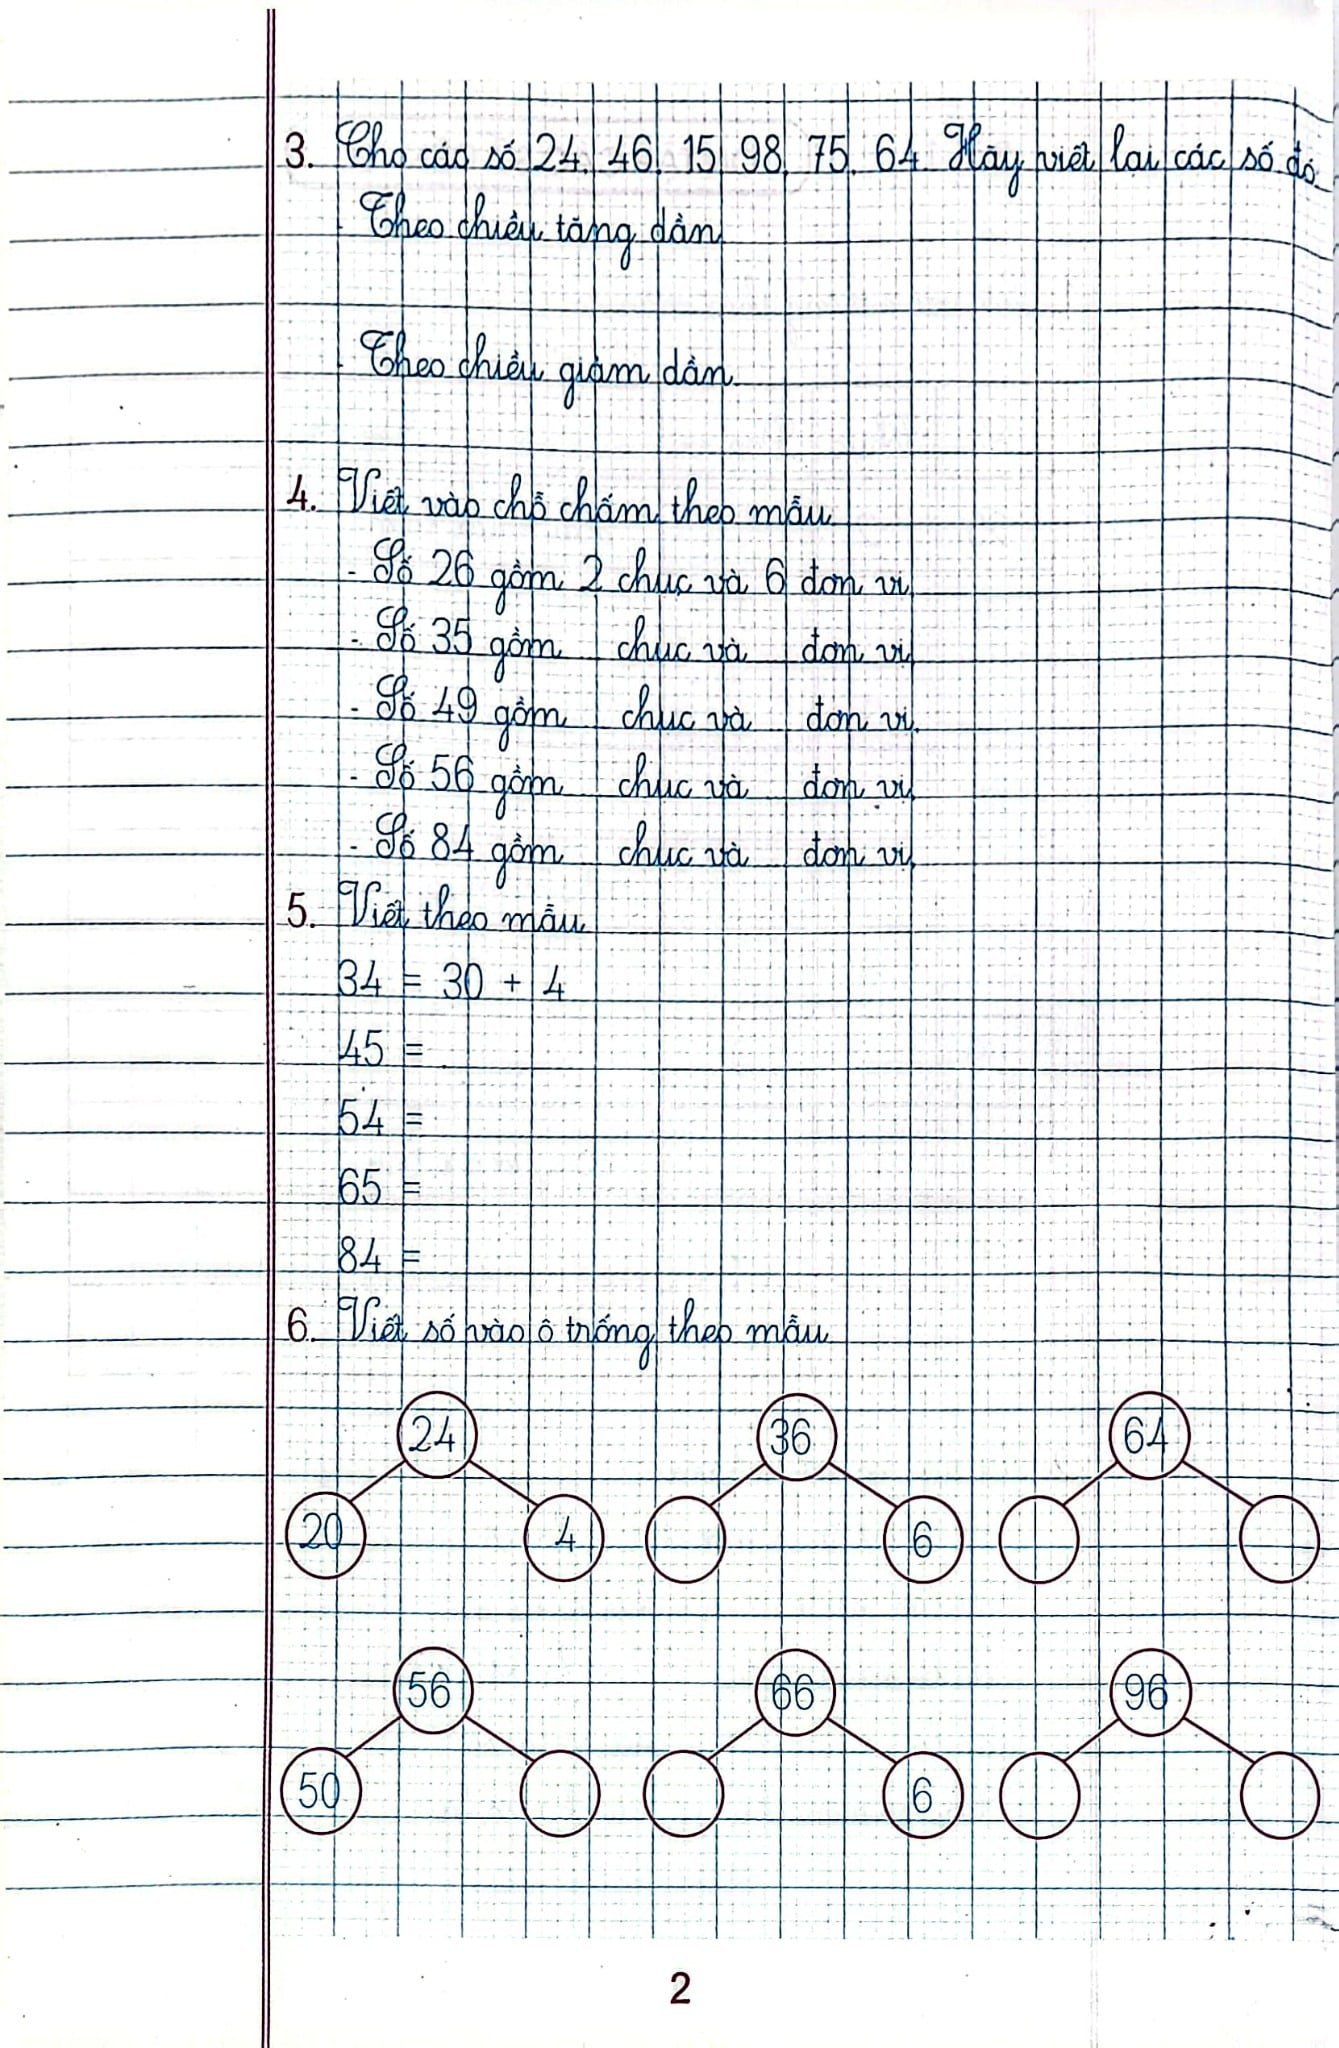 3. Cho các số 24, 46, 15, 98, 75, 64. Hãy viết lại các số đó
. Theo chiều tăng dần
. Theo chiều giảm dần
4. Viết vào chỗ chấm theo mẫu
- Số 26 gồm 2 chục và 6 đơn vị
- Số 35 gồm chục và đơn vị
- Số 49 gồm chục và đơn vị.
- Số 56 gồm chục và đơn vị
- Số 84 gồm chục và đơn vị
5. Viết theo mẫu
34 = 30 + 4
45 =
54 =
65 =
84 =
6. Viết số vào ô trống theo mẫu
24 36 64
20 4 6
56 66 96
50 6
2